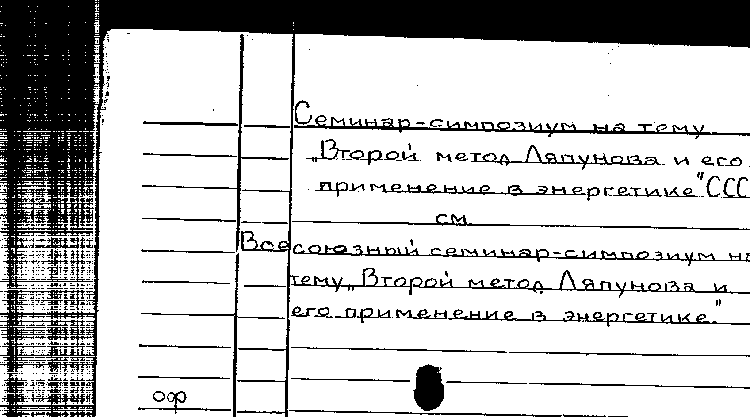 Семинар-симпозиум на тему
„Второй метод Ляпунова и его
применение в энергетике" ССС
см.
Всесоюзный семинар-симпозиум на
тему „Второй метод Ляпунова и
его применение в энергетике."